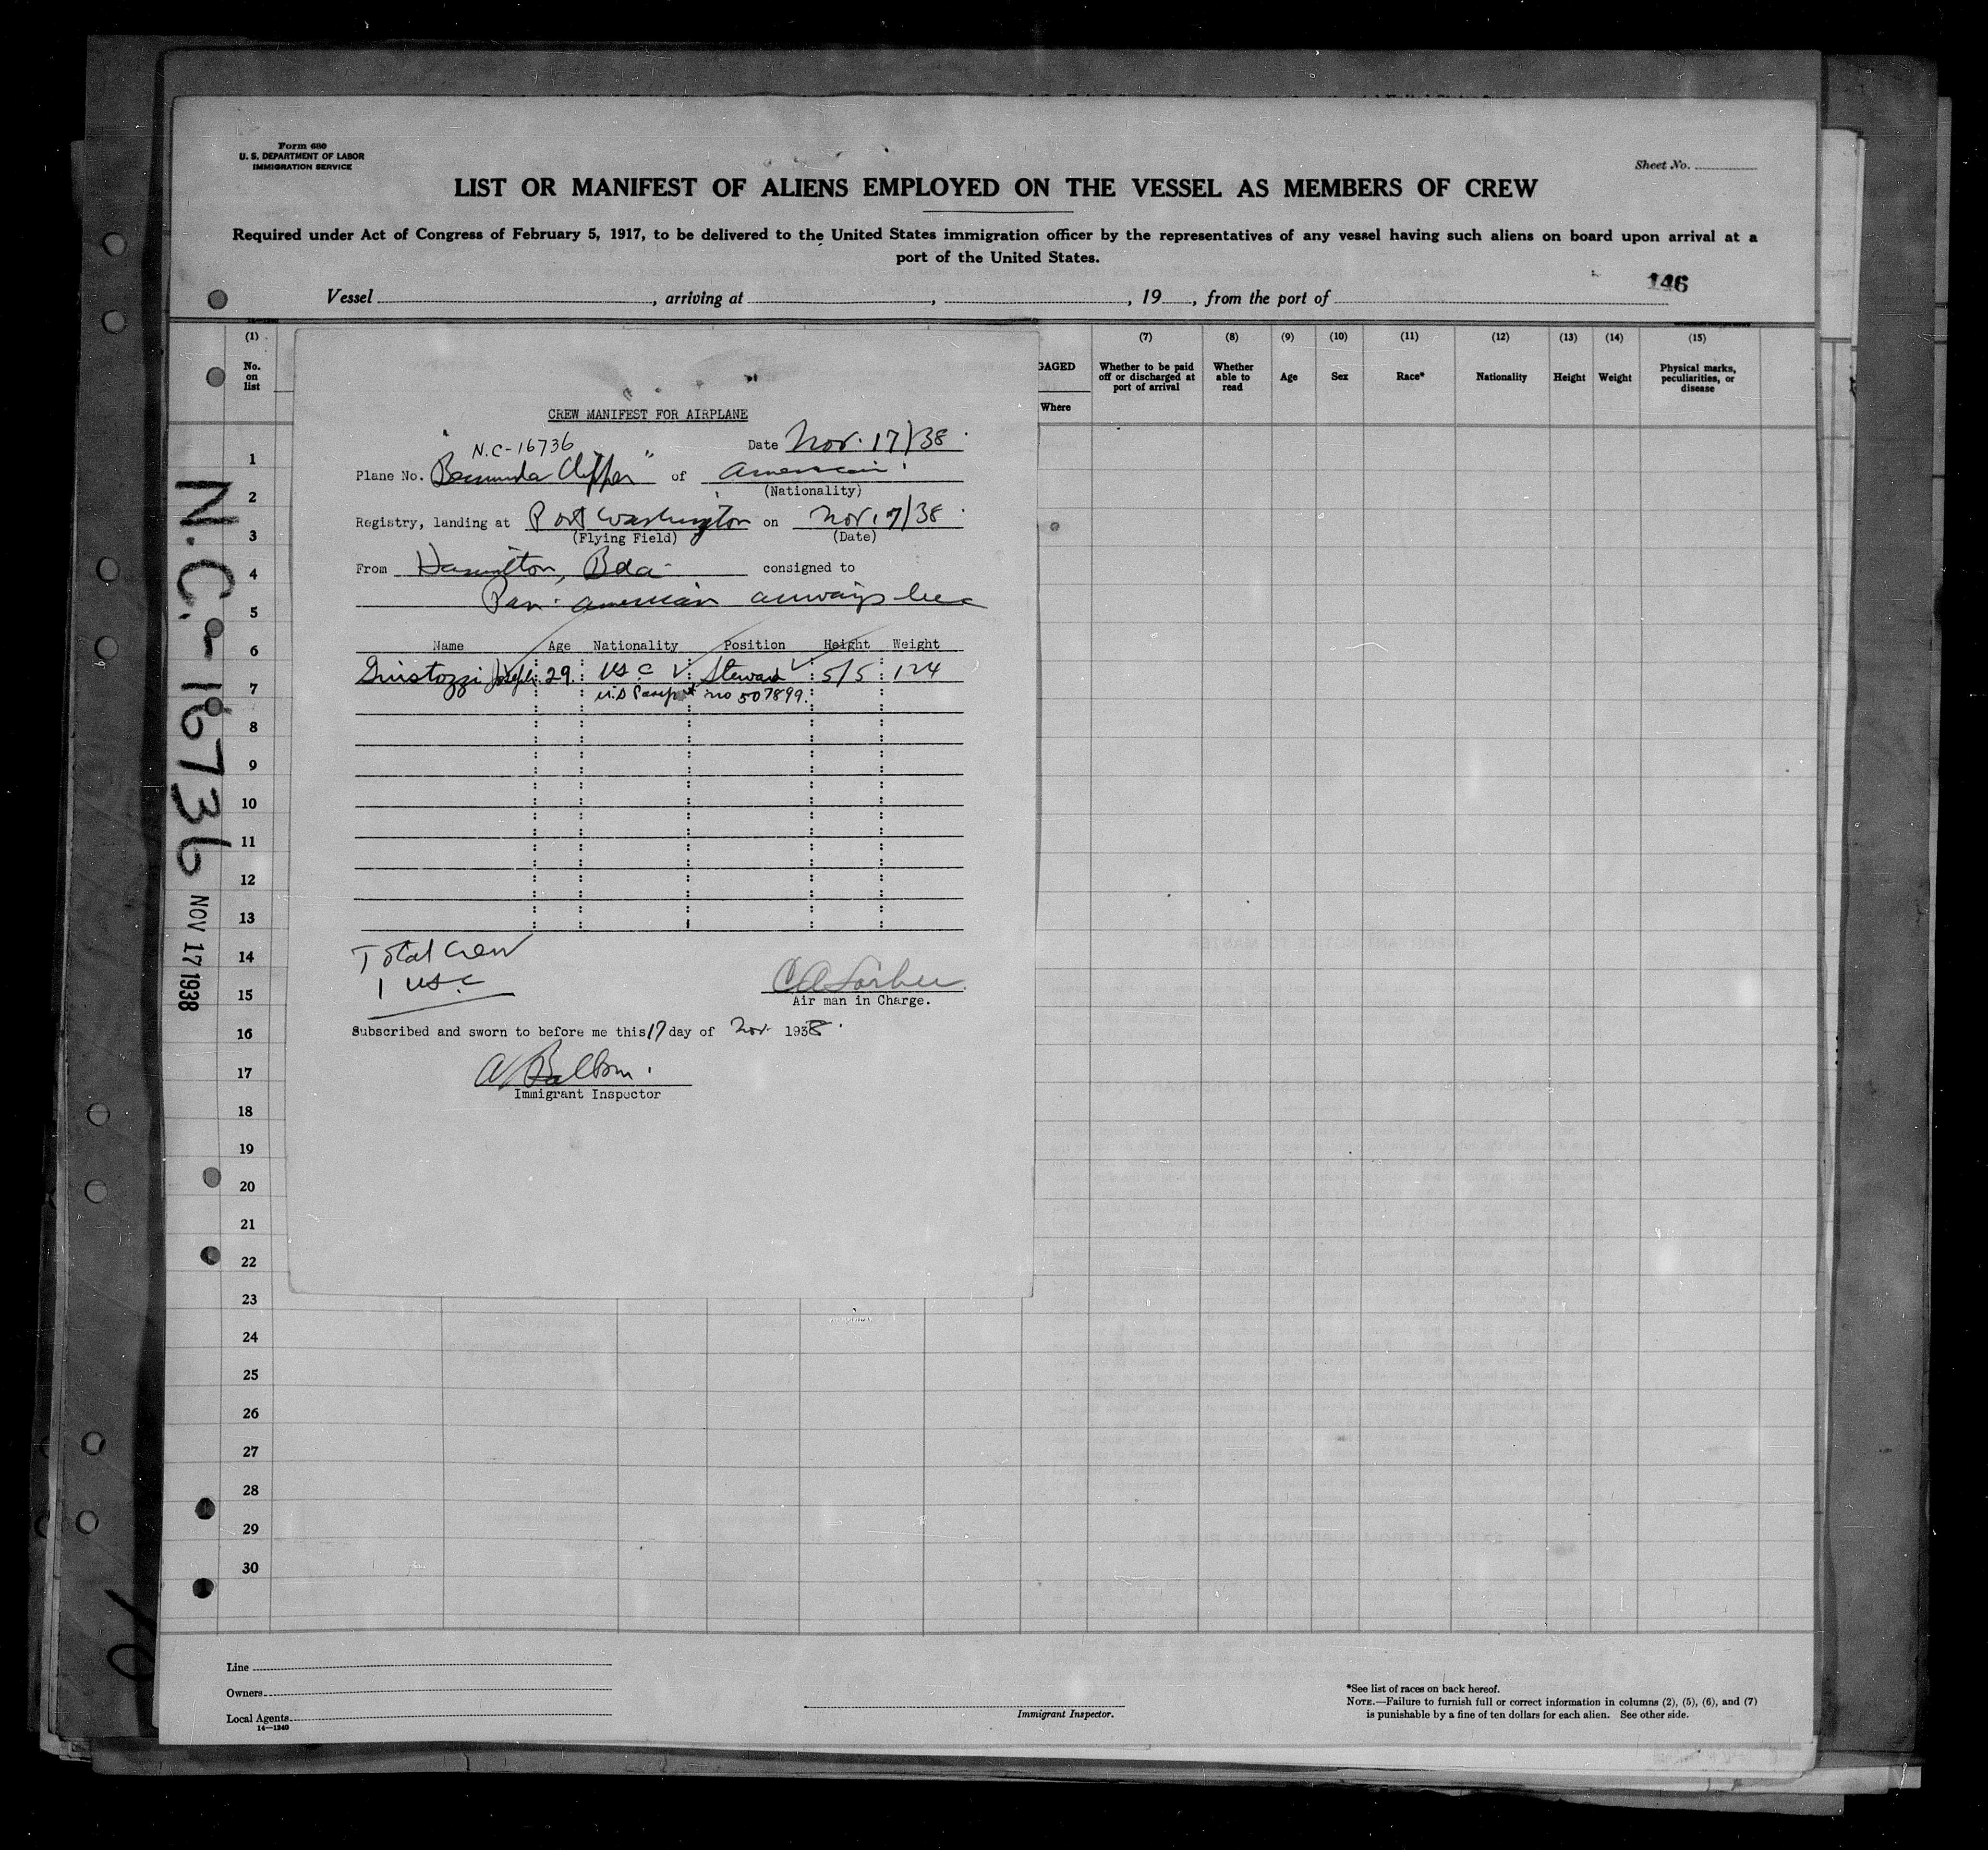 Form 680
U. S. DEPARTMENT OF LABOR
IMMIGRATION SERVICE
Sheet No.
LIST OR MANIFEST OF ALIENS EMPLOYED ON THE VESSEL AS MEMBERS OF CREW
Required under Act of Congress of February 5, 1917, to be delivered to the United States immigration officer by the representatives of any vessel having such aliens on board upon arrival at a
port of the United States.
146
Vessel , arriving at , , 19 , from the port of
(1) (7) (8) (9) (10) (11) (12) (13) (14) (15)
No. on list GAGED Where Whether to be paid off or discharged at port of arrival Whether able to read Age Sex Race* Nationality Height Weight Physical marks, peculiarities, or disease
CREW MANIFEST FOR AIRPLANE
N.C-16736 Date Nov. 17/38
Plane No. "Bermuda Clipper" of American
(Nationality)
Registry, landing at Port Washington on Nov. 17/38
(Flying Field) (Date)
From Hamilton, Bda consigned to
Pan American airways Inc
Name Age Nationality Position Height Weight
Joseph 29 USC Steward 5/5 124
U.S Passport no 507899
Total Crew
1 USC
Air man in Charge.
Subscribed and sworn to before me this 17 day of Nov. 1938.
Immigrant Inspector
N.C.-16736
NOV 17 1938
1
2
3
4
5
6
7
8
9
10
11
12
13
14
15
16
17
18
19
20
21
22
23
24
25
26
27
28
29
30
Line
Owners
Local Agents
14—1240
Immigrant Inspector.
*See list of races on back hereof.
NOTE.—Failure to furnish full or correct information in columns (2), (5), (6), and (7)
is punishable by a fine of ten dollars for each alien. See other side.